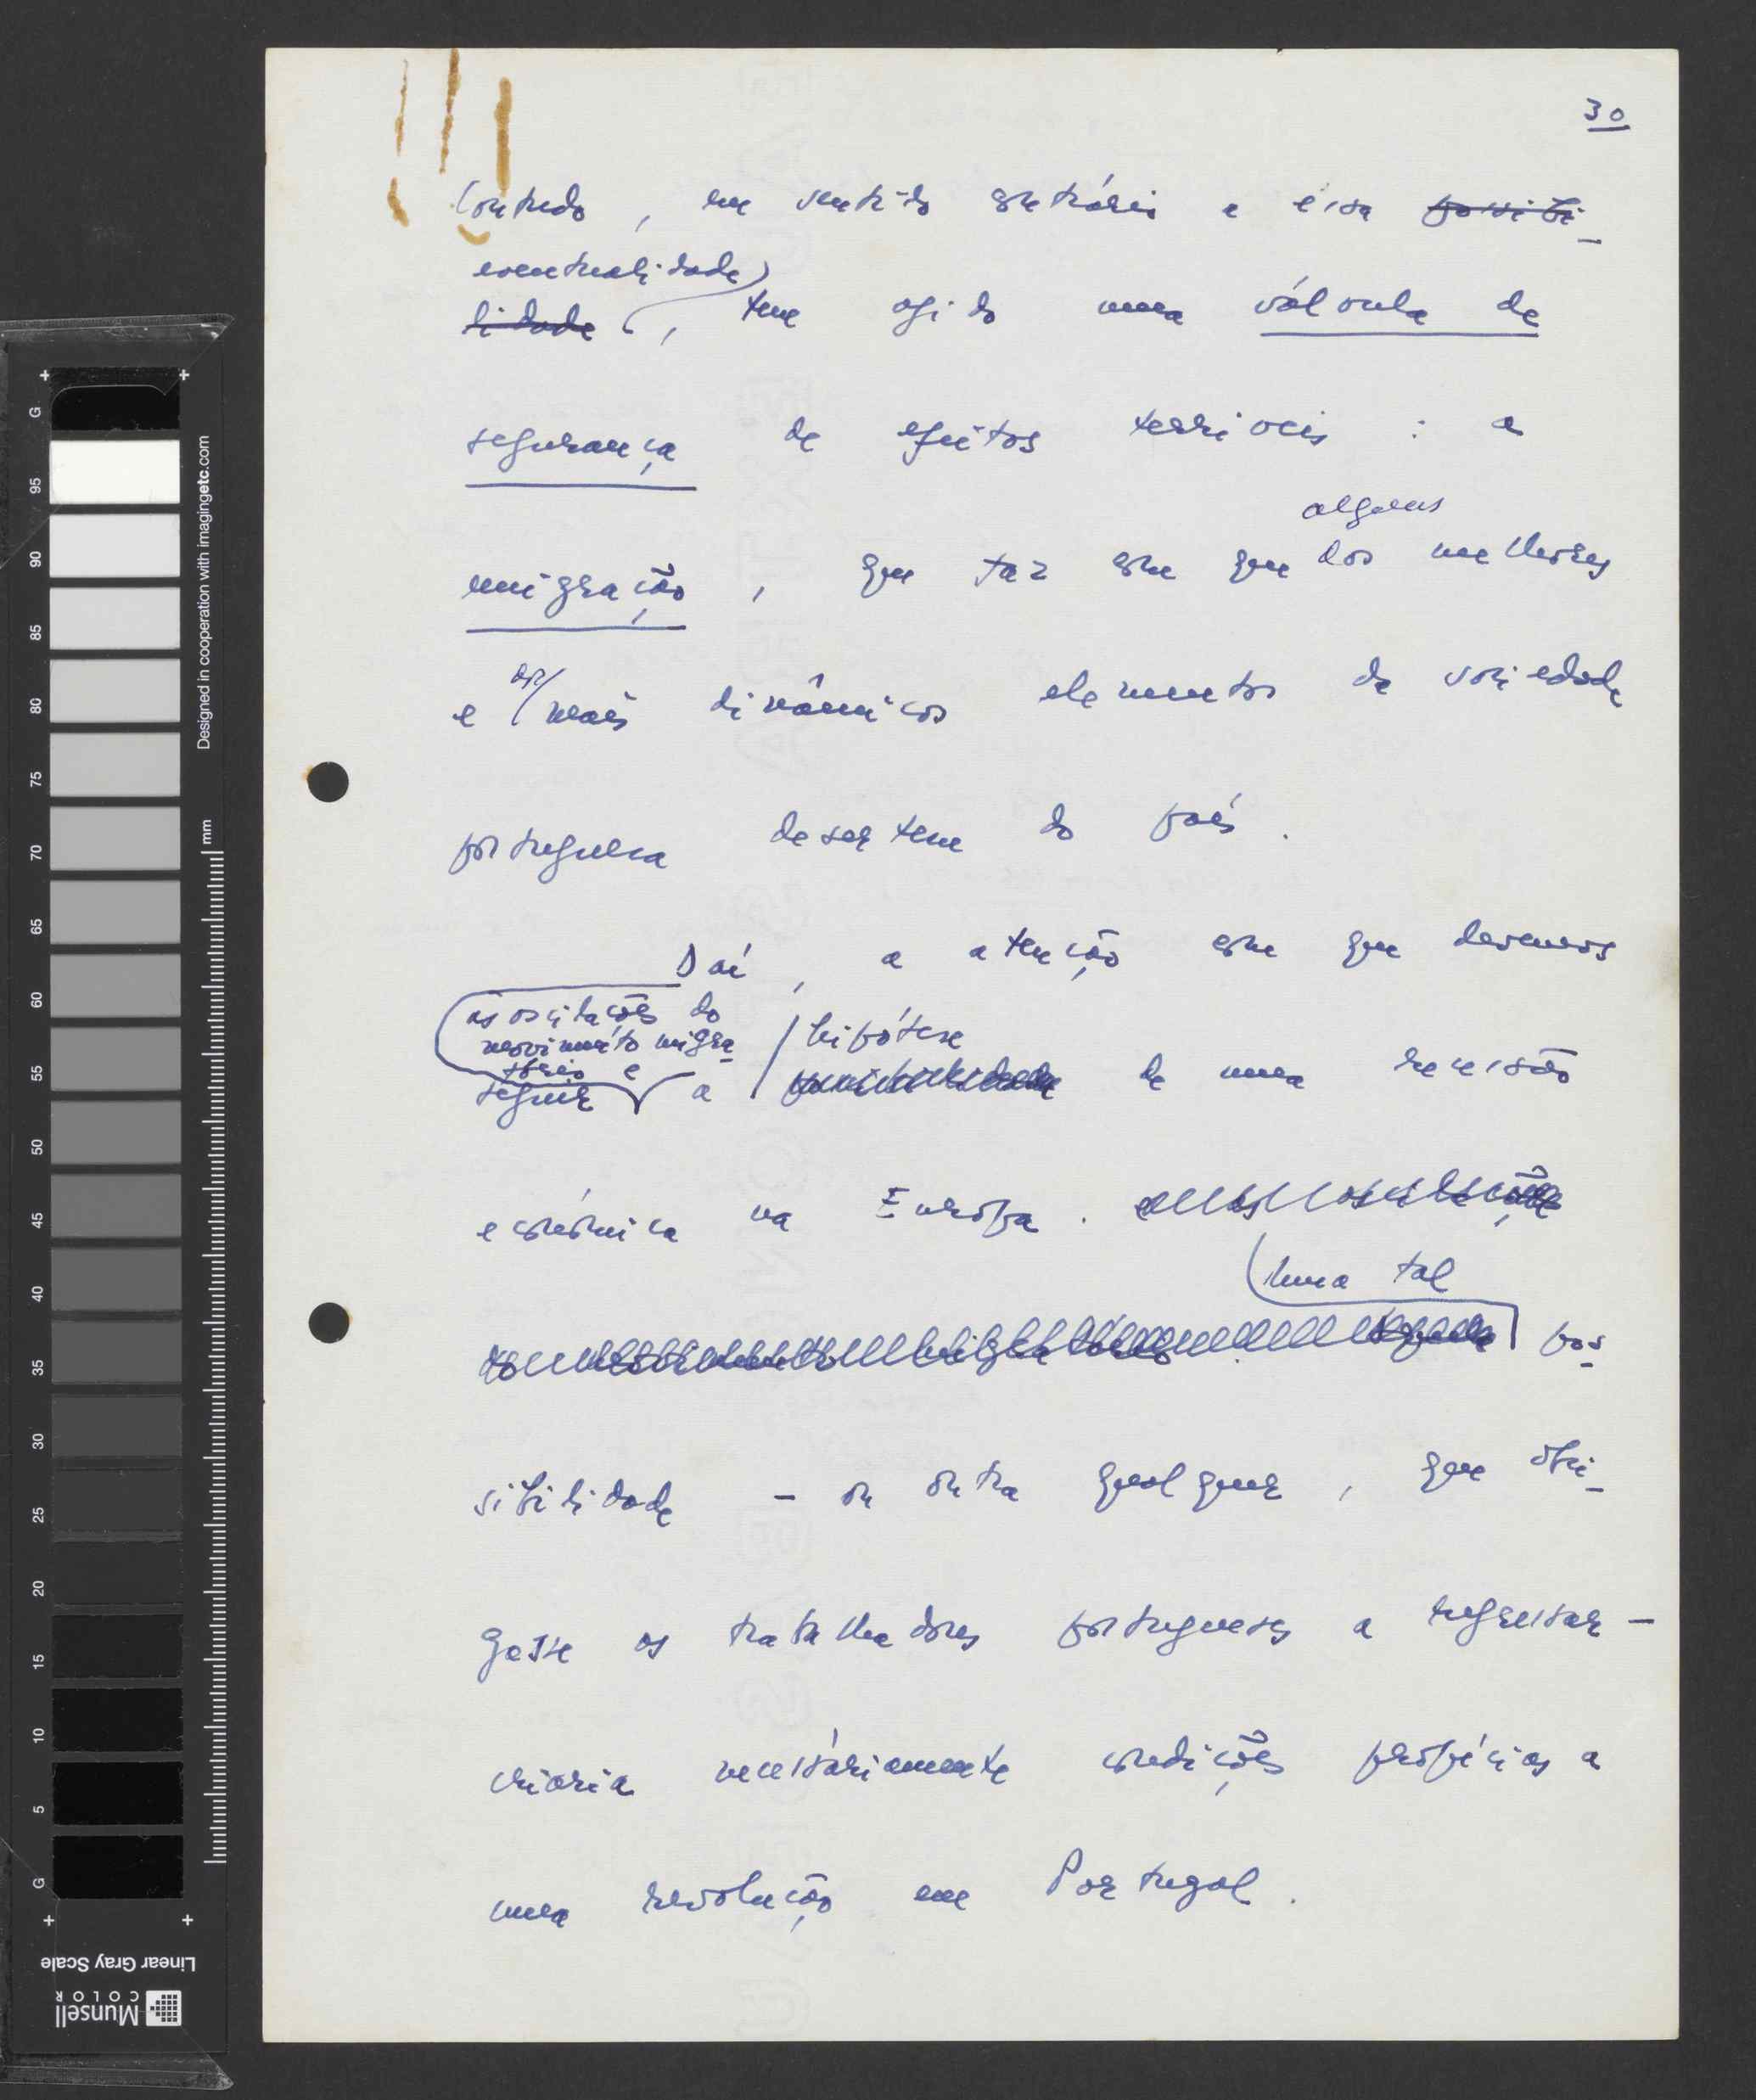 30
Contudo, em sentido contrário a essa possibi-
eventualidade
lidade, tem agido uma válvula de
segurança de efeitos terríveis : a
alguns
emigração, que faz com que dos melhores
os
e mais dinâmicos elementos da sociedade
portuguesa desertem do país.
Daí, a atenção com que devemos
as oscilações do
movimento migra-
tório e
hipótese
seguir a possibilidade de uma recessão
económica na Europa. as oscilações
Uma tal
do movimento migratório pos-
sibilidade - ou outra qualquer, que obri-
gasse os trabalhadores portugueses a regressar -
criaria necessáriamente condições propícias a
uma revolução em Portugal.
G
95
90
85
80
75
70
65
60
55
50
45
40
35
30
25
20
15
10
5
G
mm
Designed in cooperation with imagingetc.com
Linear Gray Scale
Munsell
COLOR